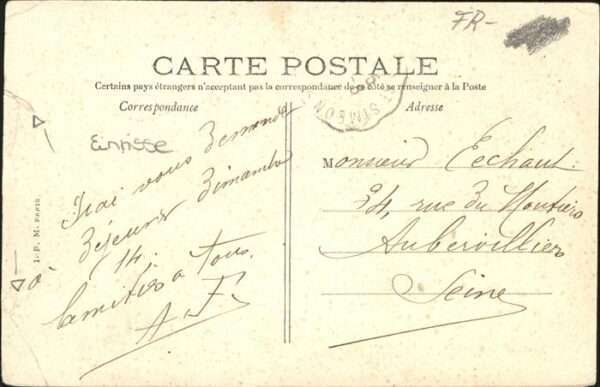 FR-
CARTE POSTALE
Certains pays étrangers n'acceptant pas la correspondance de ce côté se renseigner à la Poste
Correspondance
Adresse
ST SIMEON
J'irai vous demander
à déjeuner dimanche
14.
Amitiés à tous.
A. F.
Monsieur Techaut
34, rue du Moutiers
Aubervilliers
Seine
PARIS